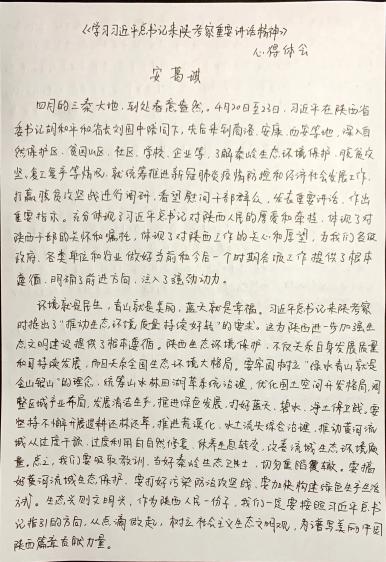 《学习习近平总书记来陕考察重要讲话精神》
心得体会
安葛祺
四月的三秦大地,到处春意盎然。4月20日至23日,习近平在陕西省
委书记胡和平和省长刘国中陪同下,先后来到商洛、安康、西安等地,深入自
然保护区、贫困山区、社区、学校、企业等,了解秦岭生态环境保护、脱贫攻
坚、复工复学等情况,就统筹推进新冠肺炎疫情防控和经济社会发展工作、
打赢脱贫攻坚战进行调研,看望慰问干部群众,发表重要讲话,作出
重要指示。充分体现了习近平总书记对陕西人民的厚爱和牵挂,体现了对
陕西干部的关怀和嘱托,体现了对陕西工作的关心和厚望,为我们各级
政府、各类单位和行业做好当前和今后一个时期各项工作提供了根本
遵循,明确了前进方向,注入了强劲动力。
环境就是民生,青山就是美丽,蓝天就是幸福。习近平总书记来陕考察
时提出了“推动生态环境质量持续好转”的要求。这为陕西进一步加强生
态文明建设提供了根本遵循。陕西生态环境保护,不仅关系自身发展质量
和可持续发展,而且关系全国生态环境大格局。要牢固树立“绿水青山就是
金山银山”的理念,统筹山水林田湖草系统治理,优化国土空间开发格局,调
整区域产业布局,发展清洁生产,推进绿色发展,打好蓝天、碧水、净土保卫战。要
坚持不懈开展退耕还林还草,推进荒漠化、水土流失综合治理,推动黄河流
域从过度干预、过度利用向自然修复、休养生息转变,改善流域生态环境质
量。总之,我们要吸取教训,当好秦岭生态卫士,切勿重蹈覆辙。要搞
好黄河流域生态保护,要打好污染防治攻坚战,要加快构建绿色生产生活
方式。生态兴则文明兴,作为陕西人民一份子,我们一定要按照习近平总书
记指引的方向,从点滴做起,树立社会主义生态文明观,为谱写美丽中国
陕西篇章贡献力量。